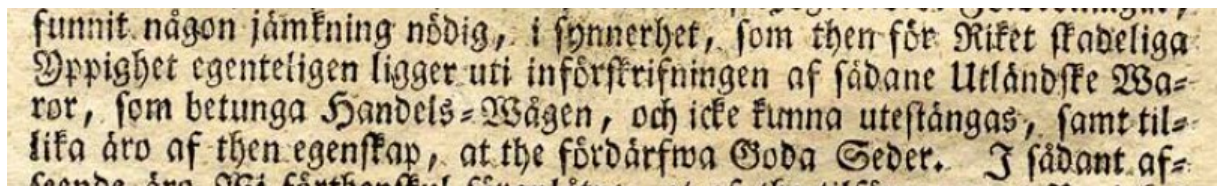 funnit någon jämkning nödig, i synnerhet, som then för Riket skadeliga
Yppighet egenteligen ligger uti införskrifningen af sådane Utländske Wa=
ror, som betunga Handels=Wågen, och icke kunna utestängas, samt til=
lika äro af then egenskap, at the fördärfwa Goda Seder. I sådant af=